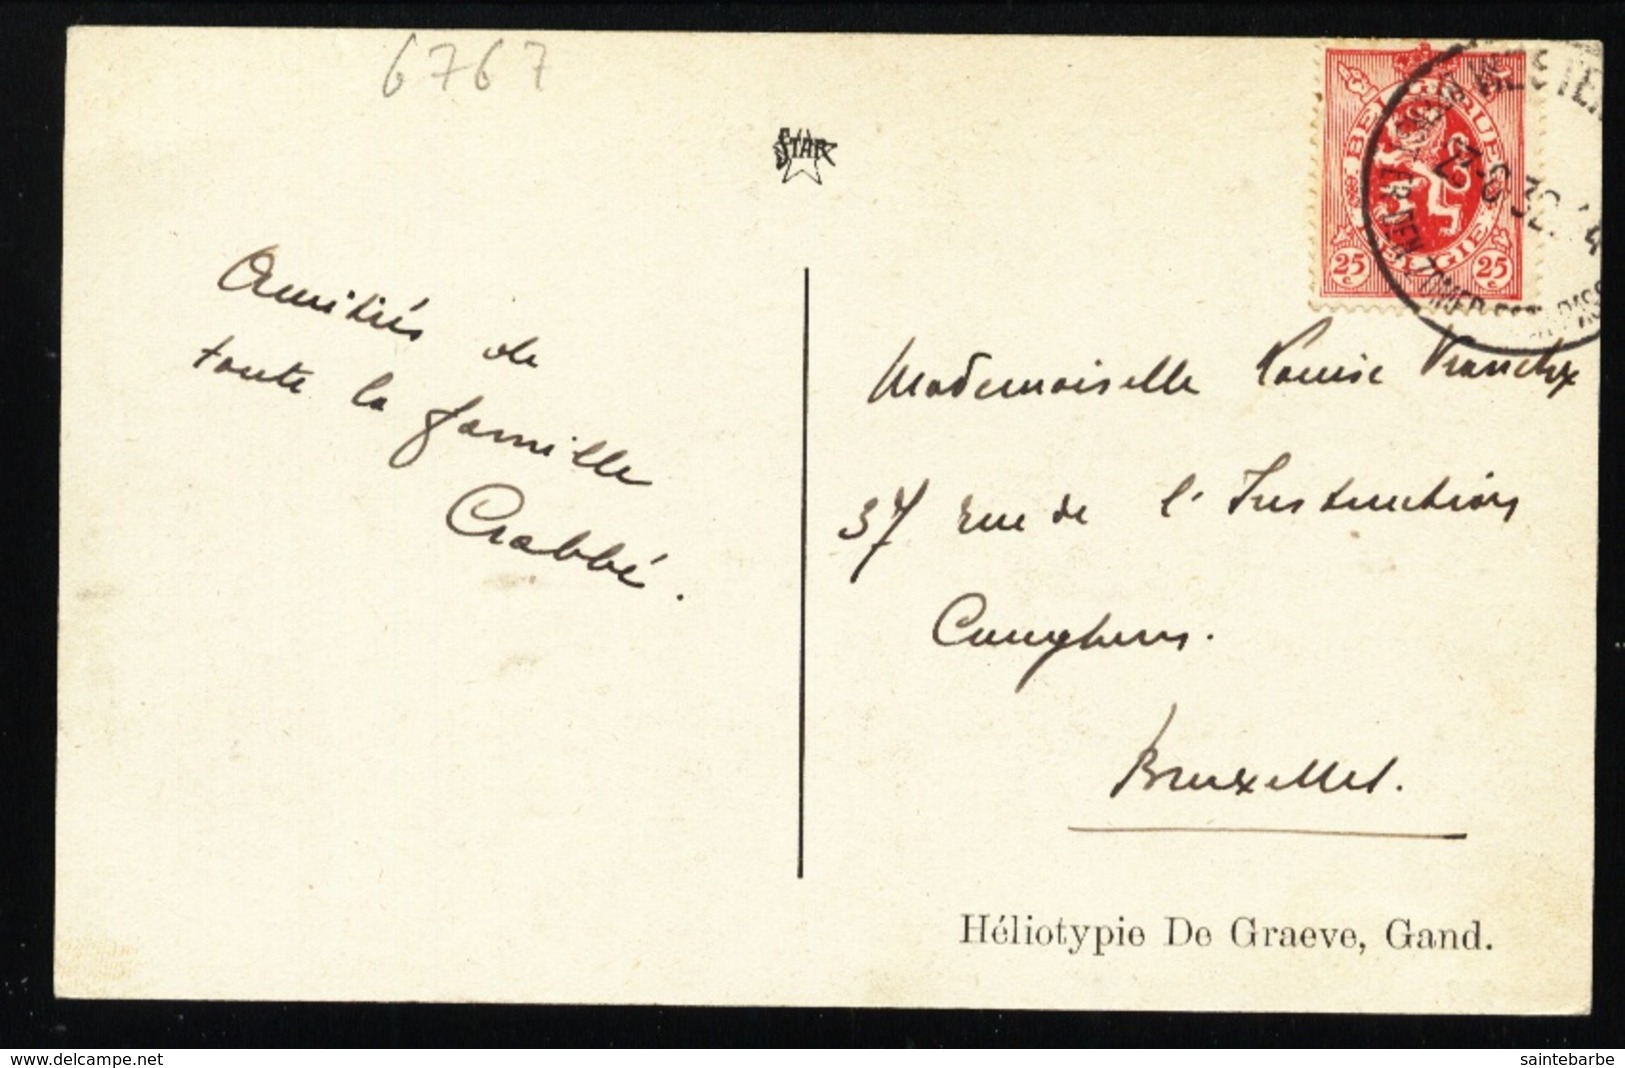 6767
STAR
BELGIQUE
BELGIË
25 c 25 c
WESTEN
ZOMER POST
Amitiés de
toute la famille
Crabbé.
Mademoiselle Louise Vranckx
37 rue de l'Instruction
Cureghem.
Bruxelles.
Héliotypie De Graeve, Gand.
www.delcampe.net
saintebarbe